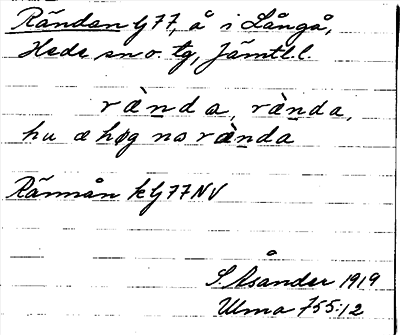 Rändan G 77, å i Långå,
Hede sn o. tg, Jämtl. l.
rànda, rànda,
hu æ høg no rànda
Rännån k G 77 NV
S. Åsander 1919
Ulma 755:12